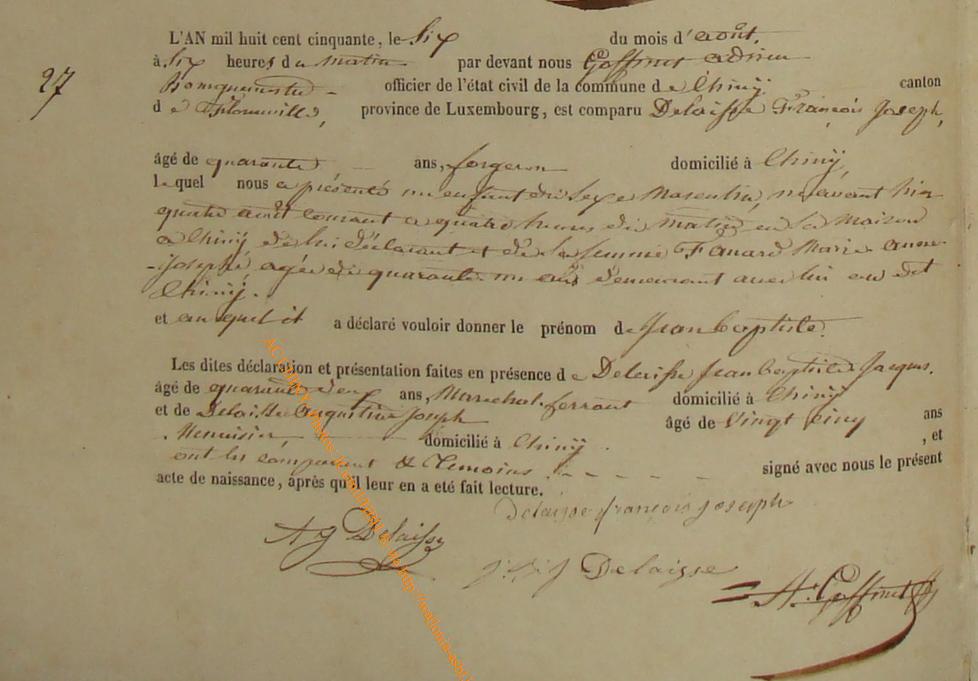 27
L'AN mil huit cent cinquante, le Six du mois d'août.
à Six heures du matin par devant nous Goffinet adrien
Bourguemestre officier de l'état civil de la commune de Chiny. canton
de Florenville, province de Luxembourg, est comparu Delaisse François Joseph,
âgé de quarante ans, forgeron domicilié à Chinÿ,
lequel nous a présenté un enfant du Sexe Masculin, né avant hier
quatre août courant a quatre heures du matin en la Maison
a Chinÿ de lui déclarant et de la femme Fanard Marie anne
-Josephe, agée de quarante un ans demeurant avec lui au dit
Chinÿ.
et auquel il a déclaré vouloir donner le prénom de Jean baptiste.
Les dites déclaration et présentation faites en présence de Delaisse Jean baptiste Jacques.
âgé de quarante deux ans, Marechal ferrant domicilié à Chinÿ
et de Delaisse augustin Joseph âgé de Vingt Cinq ans
Menuisier, domicilié à Chinÿ. , et
ont les comparant & témoins signé avec nous le présent
acte de naissance, après qu'il leur en a été fait lecture.
Delaisse françois Joseph
A J Delaisse
J. B. J Delaisse
A. Goffinet